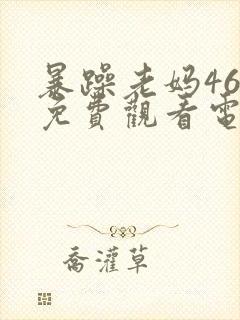 暴躁老妈46
免費觀看電
喬灌草